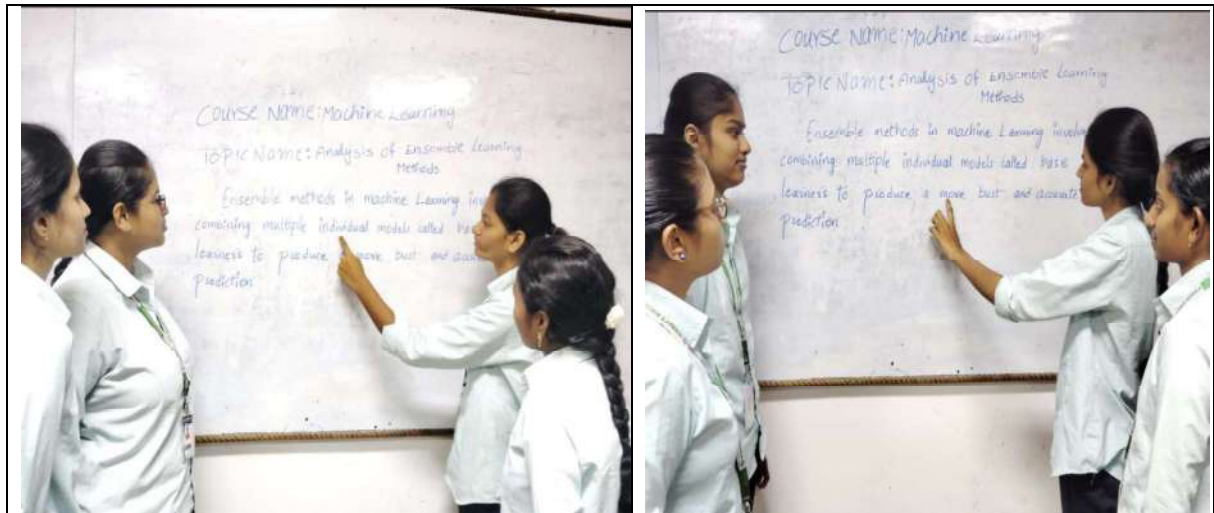 Course Name: Machine Learning
Topic Name: Analysis of Ensemble Learning
Methods
Ensemble methods in machine Learning
combining multiple individual models called
learners to produce move bust and
prediction
Course Name: Machine Learning
Topic Name: Analysis of Ensemble Learning
Methods
Ensemble methods in machine Learning
combining multiple individual models called base
learners to produce a move bust and accurate
prediction